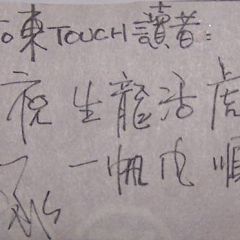 to東TOUCH讀者:
祝 生龍活虎
一帆风順